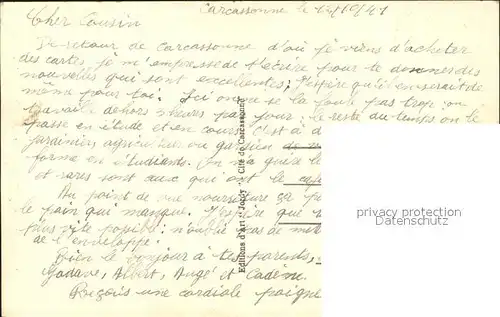 Carcassonne le 12/10/41
Cher Cousin
De retour de Carcassonne d'où je viens d'acheter
des cartes, je m'empresse de t'écrire pour te donner des
nouvelles qui sont excellentes; J'espère qu'il en serait de
même pour toi. Ici on ne se la foule pas trop; on
travaille dehors heures par jour; le reste du temps on le
passe en étude et en cours. C'est à d
jardiniers agriculteurs ou gardien
forme en étudiants. On n'a guère le
et rares sont ceux qui ont le
Au point de vue nourriture ça
le pain qui manque. J'espère que
plus vite possible; n'oublie pas de
de l'enveloppe.
Bien le bonjour à tes parents,
Yodane, Albert, Angé et Cadène.
Reçois une cordiale poigne
Editions d'Art "Jordy" - Cité de Carcassonne
privacy protection
oldthing.com